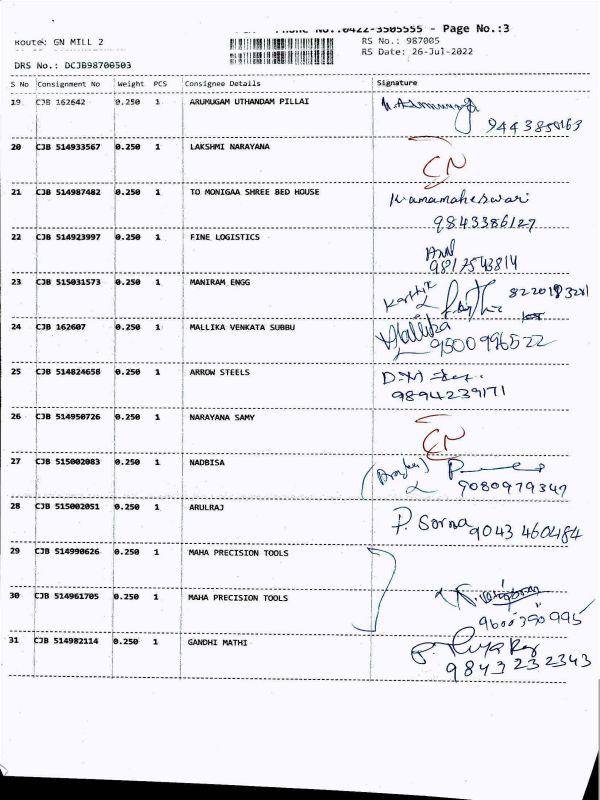 Phone No.:0422-3505555 - Page No.:3
Route: GN MILL 2
RS No.: 987005
RS Date: 26-Jul-2022
DRS No.: DCJB98700503
S No Consignment No Weight PCS Consignee Details Signature
19 CJB 162642 0.250 1 ARUMUGAM UTHANDAM PILLAI
9443850163
20 CJB 514933567 0.250 1 LAKSHMI NARAYANA CN
21 CJB 514987482 0.250 1 TO MONIGAA SHREE BED HOUSE
9843386127
22 CJB 514923997 0.250 1 FINE LOGISTICS
9817543814
23 CJB 515031573 0.250 1 MANIRAM ENGG Karthik
24 CJB 162607 0.250 1 MALLIKA VENKATA SUBBU Mallika
9500996522
25 CJB 514824658 0.250 1 ARROW STEELS
9894239171
26 CJB 514950726 0.250 1 NARAYANA SAMY CN
27 CJB 515002083 0.250 1 NADBISA
9080979347
28 CJB 515002051 0.250 1 ARULRAJ P. Sorna 9043 460484
29 CJB 514990626 0.250 1 MAHA PRECISION TOOLS
30 CJB 514961705 0.250 1 MAHA PRECISION TOOLS
9600390995
31 CJB 514982114 0.250 1 GANDHI MATHI
9843232343